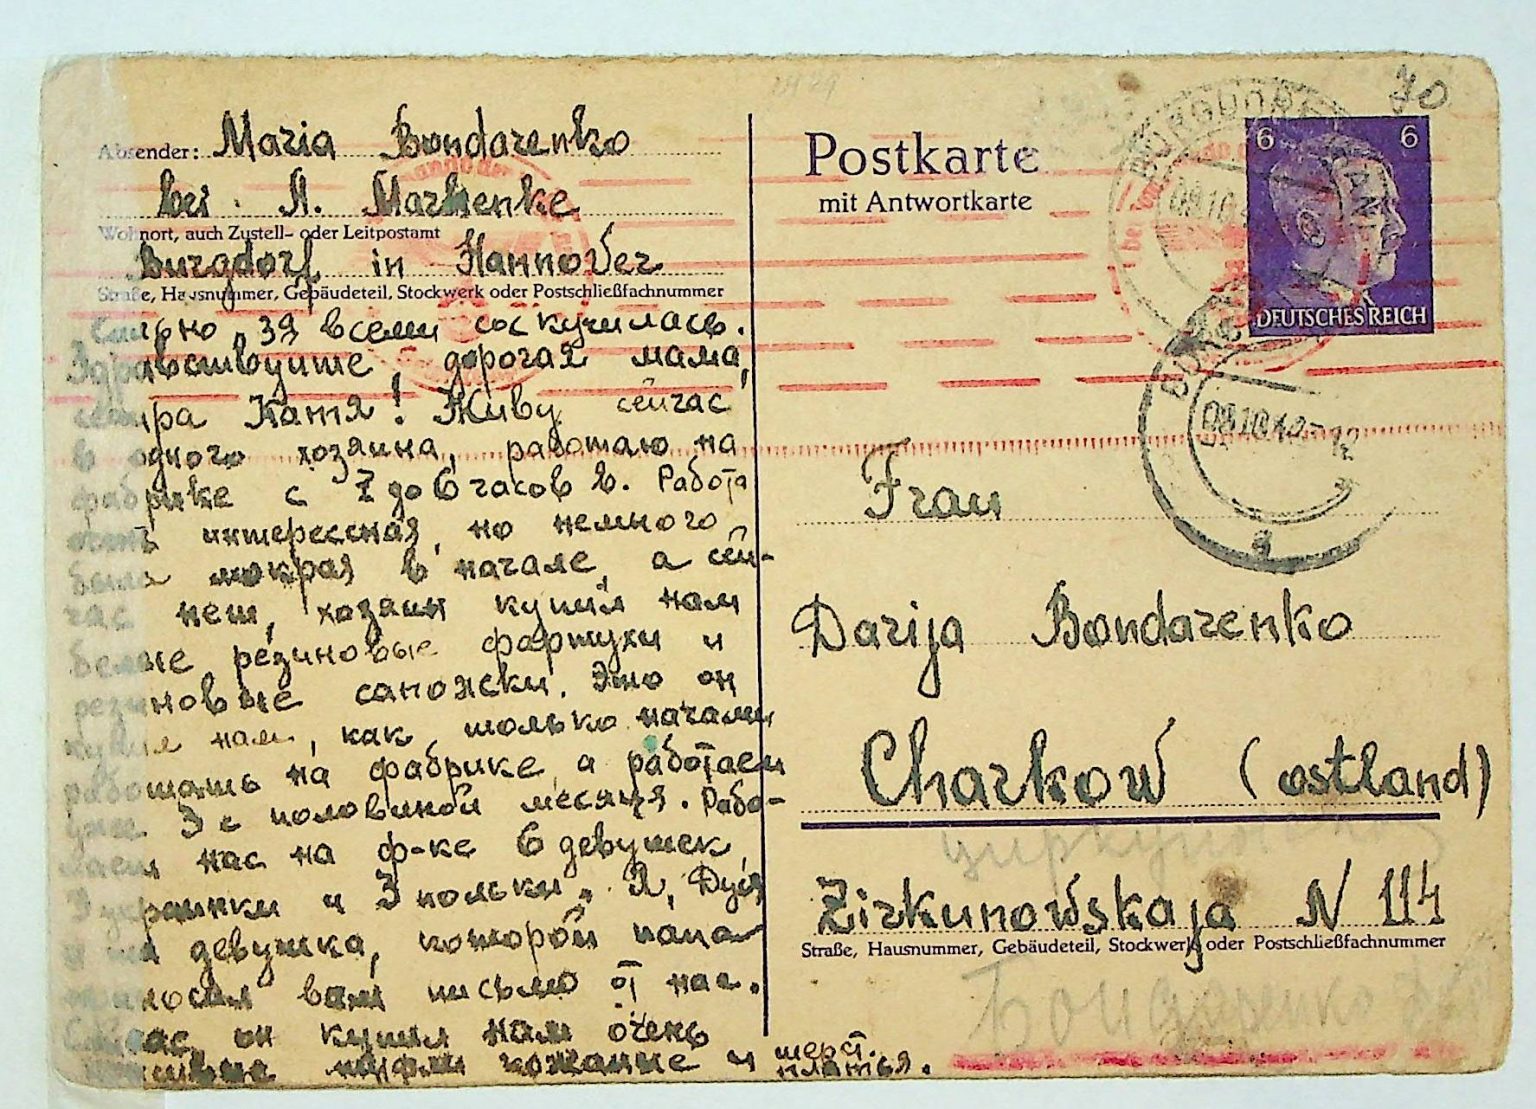 Absender: Maria Bondarenko
bei A. Markenke
Wohnort, auch Zustell- oder Leitpostamt
Burgdorf in Hannover
Straße, Hausnummer, Gebäudeteil, Stockwerk oder Postschließfachnummer
Сильно за всеми соскучилась.
Здравствуйте, дорогая мама,
сестра Катя! Живу сейчас
в одного хозяина, работаю на
фабрике с 7 до 6 часов в. Работа
очень интерессная, но немного
была мокрая в начале, а сей-
час нет, хозяин купил нам
белые резиновые фартухи и
резиновые сапожки. Это он
купил нам, как только начали
работать на фабрике, а работаем
уже 3 с половиной месяця. Рабо-
таем нас на ф-ке 6 девушек,
3 украинки и 3 польки. Я, Дуся
и та девушка, которой папа
приносил вам письмо от нас.
Сейчас он купил нам очень
красивые туфли кожание и шерст.
платья.
Postkarte
mit Antwortkarte
6 6
DEUTSCHES REICH
BURGDORF
08.10.42-12
a
70
Frau
Darija Bondarenko
Charkow (ostland)
Zirkunowskaja N 114
Straße, Hausnummer, Gebäudeteil, Stockwerk oder Postschließfachnummer
Бондаренко